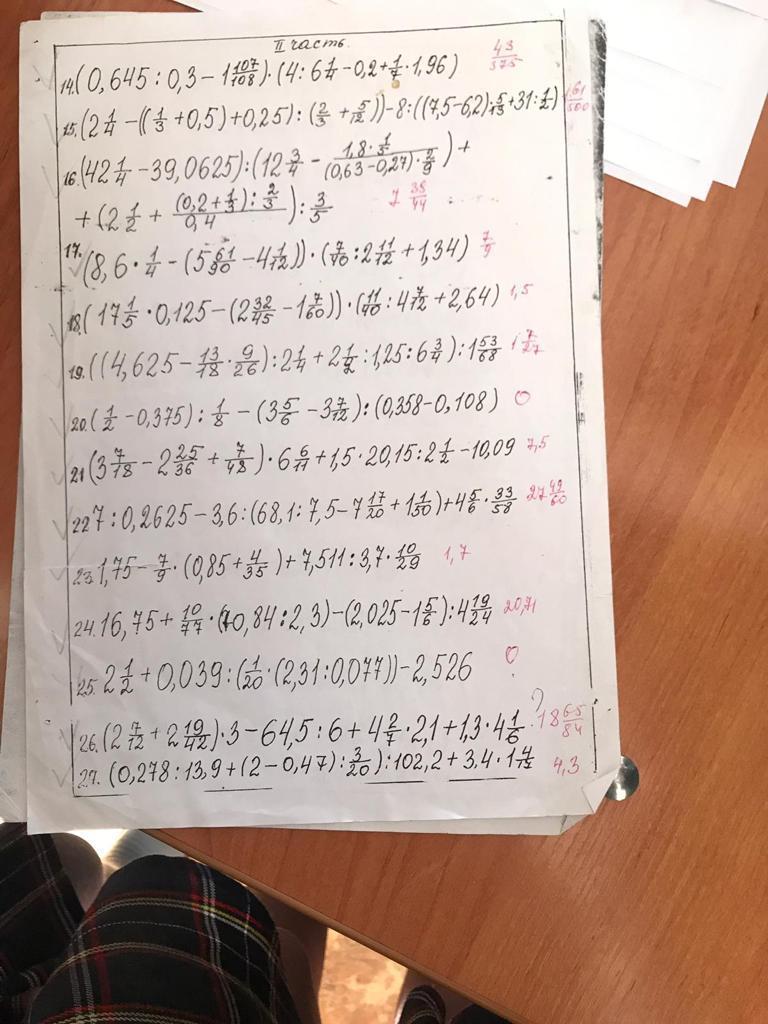 II часть.
14. (0,645 : 0,3 − 1 107/108) · (4 : 6 1/4 − 0,2 + 1/7 · 1,96) 43/375
15. (2 1/4 − ((1/3 + 0,5) + 0,25) : (2/3 + 5/12)) − 8 : ((7,5 − 6,2) : 5/13 + 31 : 1/2) 161/500
16. (42 1/4 − 39,0625) : (12 3/4 − (1,8 · 1/3)/((0,63 − 0,27) · 2/9)) +
+ (2 1/2 + ((0,2 + 1/3) : 2/3)/0,4) : 3/5 7 38/44
17. (8,6 · 1/4 − (5 61/90 − 4 1/12)) · (7/40 : 2 11/12 + 1,34) 7/9
18. (17 1/5 · 0,125 − (2 32/45 − 1 7/60)) · (11/40 : 4 7/12 + 2,64) 1,5
19. ((4,625 − 13/18 · 9/26) : 2 1/4 + 2 1/2 : 1,25 : 6 3/4) : 1 53/68 1 7/27
20. (1/2 − 0,375) : 1/8 − (3 5/6 − 3 7/12) : (0,358 − 0,108) 0
21 (3 7/18 − 2 25/36 + 7/48) · 6 6/11 + 1,5 · 20,15 : 2 1/2 − 10,09 7,5
22 7 : 0,2625 − 3,6 : (68,1 : 7,5 − 7 17/20 + 1 1/50) + 4 5/6 · 33/58 27 49/60
23. 1,75 − 7/9 · (0,85 + 4/35) + 7,511 : 3,7 · 10/29 1,7
24. 16,75 + 10/77 · (10,84 : 2,3) − (2,025 − 1 5/6) : 4 19/24 20,71
25. 2 1/2 + 0,039 : (1/20 · (2,31 : 0,077)) − 2,526 0
26. (2 7/12 + 2 19/42) · 3 − 64,5 : 6 + 4 2/7 · 2,1 + 1,3 · 4 1/6 ? 18 65/84
27. (0,278 : 13,9 + (2 − 0,47) : 3/20) : 102,2 + 3,4 · 1 4/17 4,3